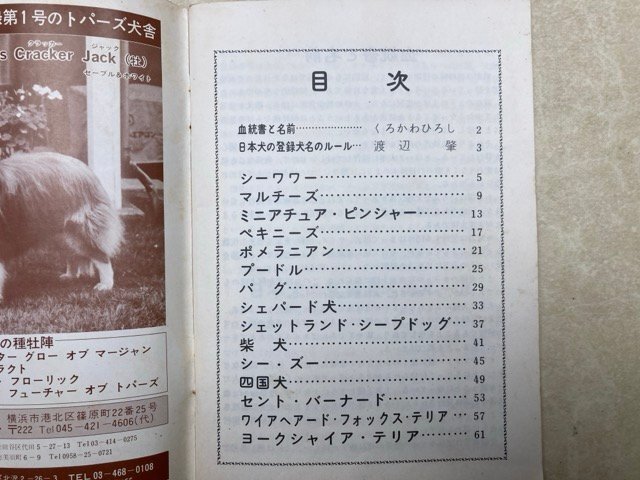 第1号のトパーズ犬舎
クラッカー ジャック
Cracker Jack (牡)
セーブル&ホワイト
の種牡陣
ター グロー オブ マージャン
ラクト
フローリック
フューチャー オブ トパーズ
横浜市港北区篠原町22番25号
〒222 Tel 045-421-4606(代)
谷区代田5-27-13 Tel 03-414-0275
6-9 Tel 0958-25-0721
2-26-3 Tel 03-468-0108
目次
血統書と名前………………くろかわひろし 2
日本犬の登録犬名のルール…渡辺 肇 3
シーワワー………………………… 5
マルチーズ………………………… 9
ミニアチュア・ピンシャー……… 13
ペキニーズ………………………… 17
ポメラニアン……………………… 21
プードル…………………………… 25
パグ………………………………… 29
シェパード犬……………………… 33
シェットランド・シープドッグ… 37
柴犬………………………………… 41
シー・ズー………………………… 45
四国犬……………………………… 49
セント・バーナード……………… 53
ワイアヘアード・フォックス・テリア… 57
ヨークシャイア・テリア………… 61